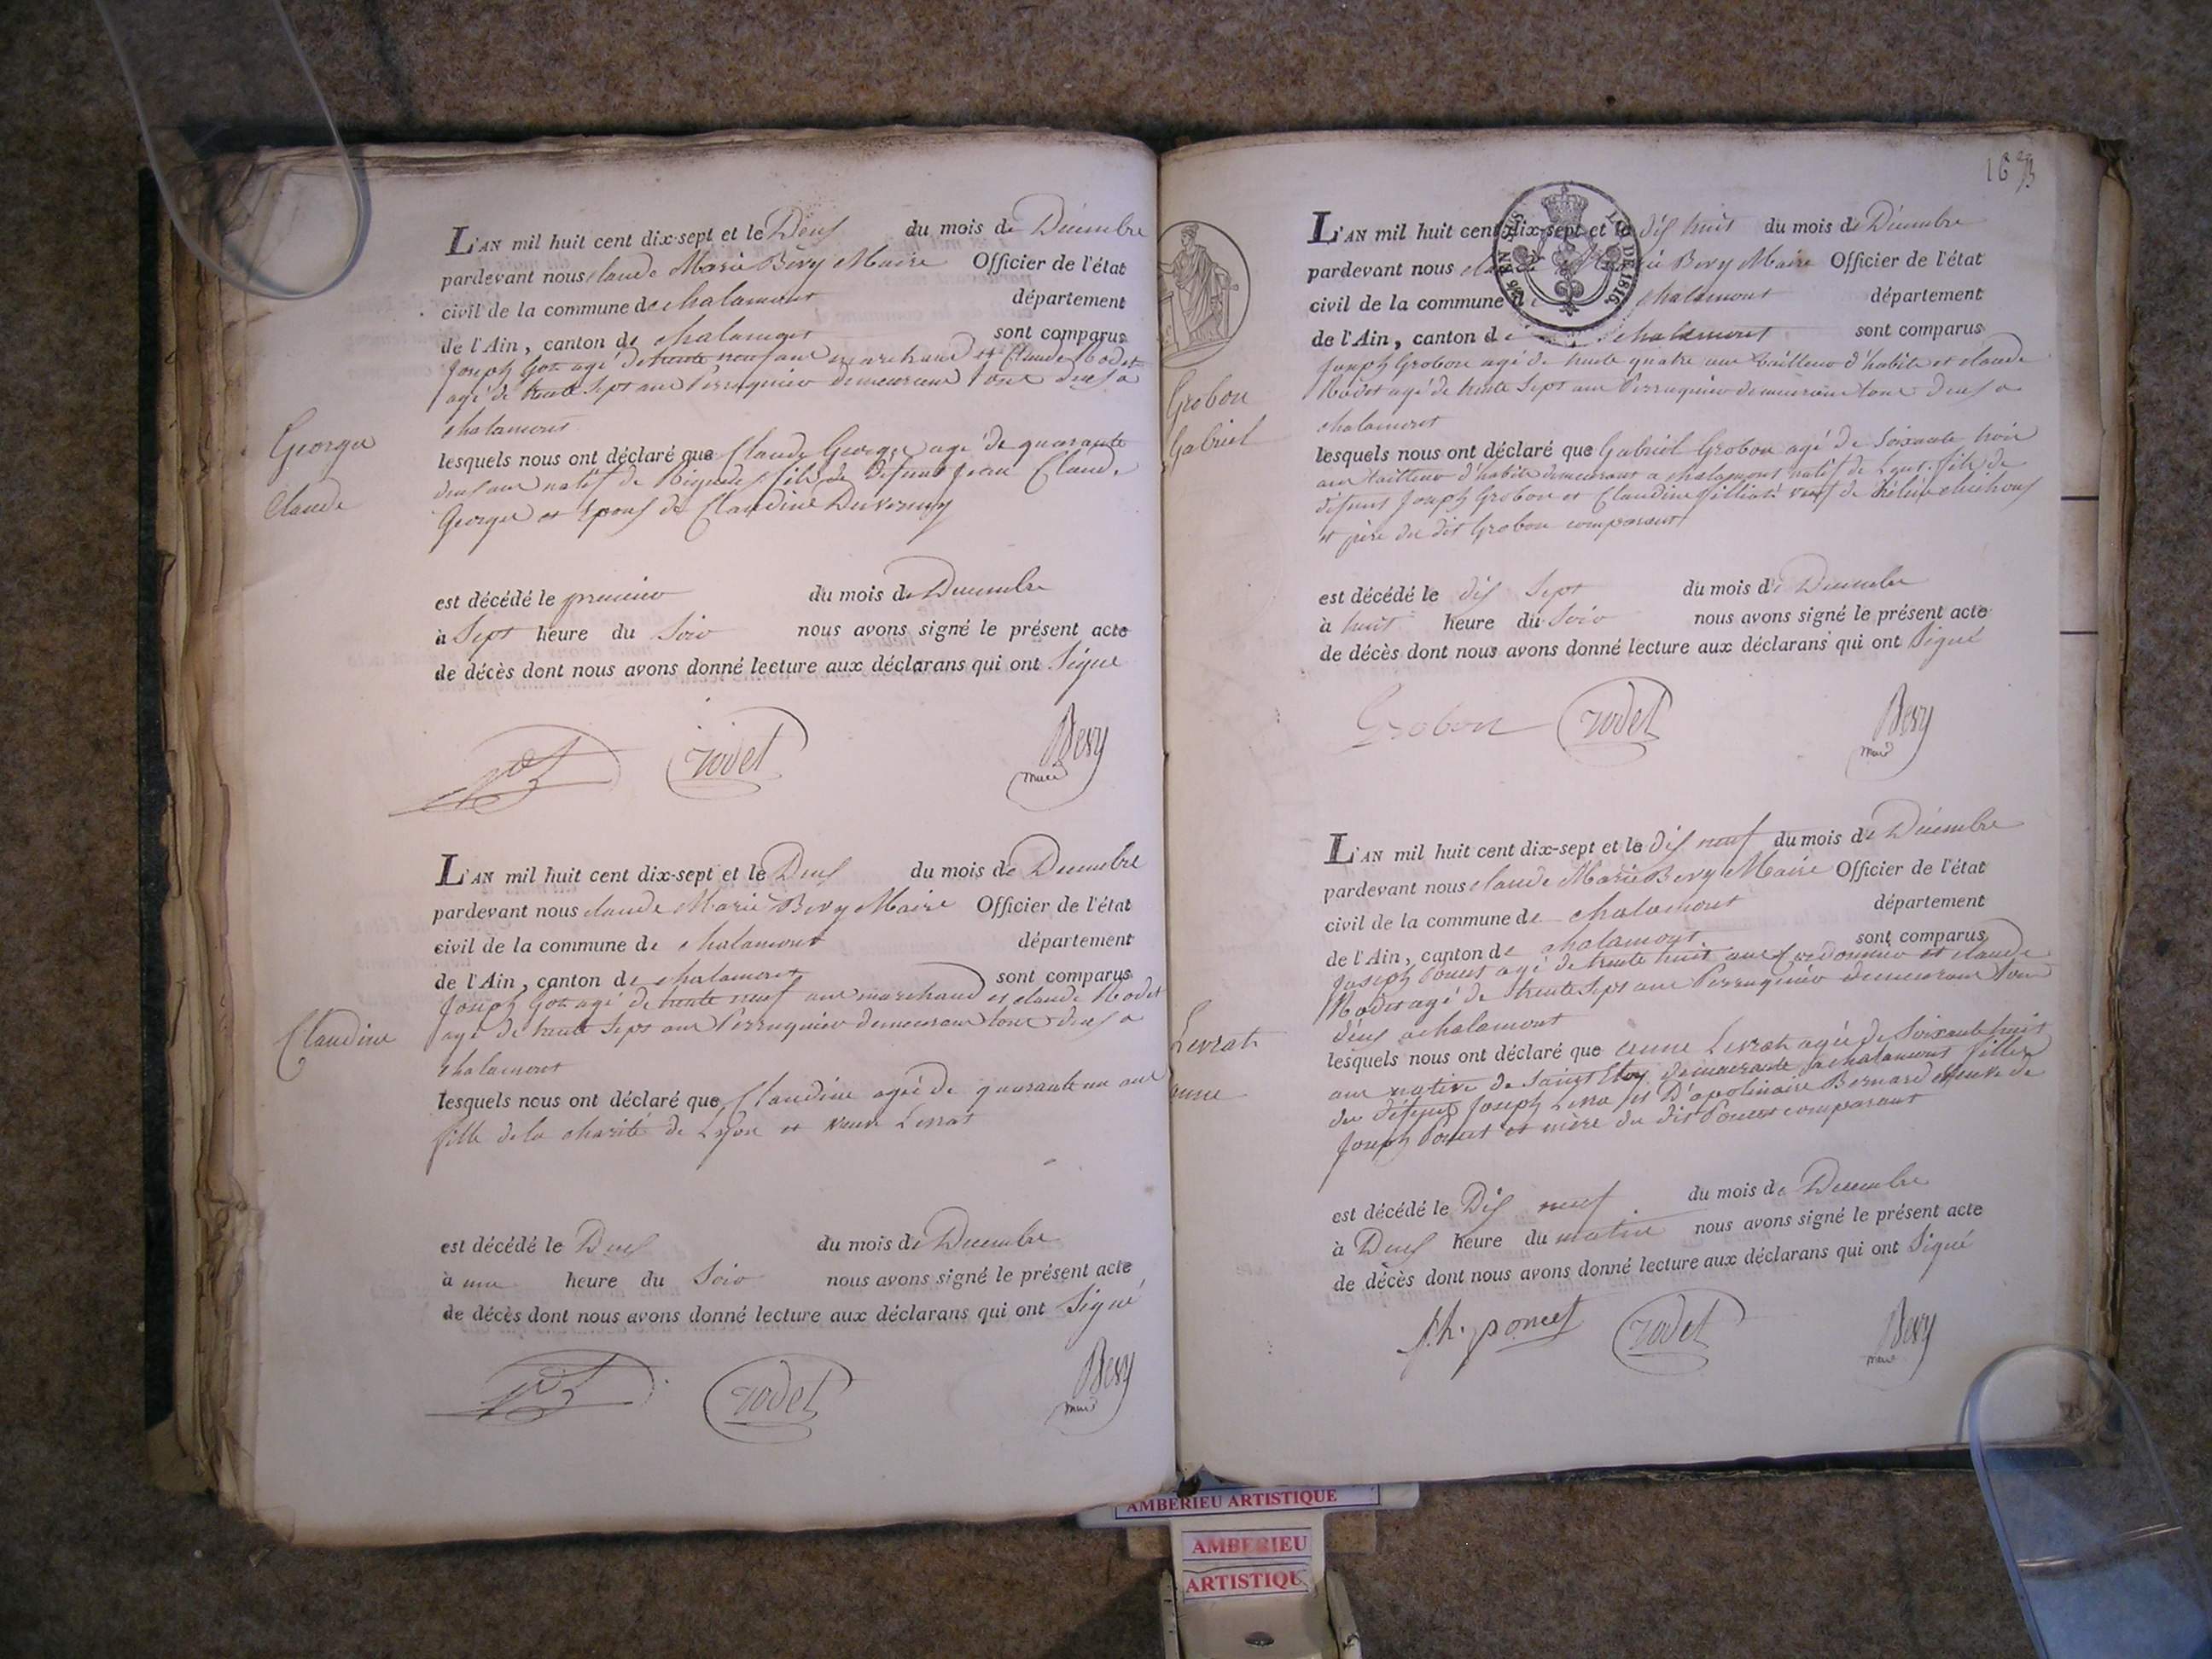 L'AN mil huit cent dix-sept et le Deux du mois de Décembre
pardevant nous Claude Marie Bevy Maire Officier de l'état
civil de la commune de chalamont département
de l'Ain, canton de chalamont sont comparus
Joseph Goz agé de trente neuf ans marchand et Claude Rodet
agé de trente Sept ans Perruquier demeurant tous deux a
chalamont
Georges
Claude
lesquels nous ont déclaré que Claude Georges agé de quarante
deux ans natif de fils de défunt Jean Claude
Georges et Epoux de Claudine Duvernay
est décédé le premier du mois de Decembre
à Sept heure du Soir nous avons signé le présent acte
de décès dont nous avons donné lecture aux déclarans qui ont Signé
rodet
Bevy
maire
L'AN mil huit cent dix-sept et le Deux du mois de Decembre
pardevant nous claude Marie Bevy Maire Officier de l'état
civil de la commune de chalamont département
de l'Ain, canton de chalamont sont comparus
Joseph Goz agé de trente neuf ans marchand et claude Rodet
agé de trente Sept ans Perruquier demeurant tous deux a
chalamont
Claudine
lesquels nous ont déclaré que Claudine agée de quarante un ans
fille de la charité de Lyon et veuve Levrat
est décédé le Deux du mois de Decembre
à une heure du Soir nous avons signé le présent acte
de décès dont nous avons donné lecture aux déclarans qui ont Signé
rodet
Bevy
maire
L'AN mil huit cent dix-sept et le dix huit du mois de Décembre
pardevant nous Bevy Maire Officier de l'état
civil de la commune de chalamont département
de l'Ain, canton de chalamont sont comparus
LOI DE 1816.
Joseph Grobon agé de trente quatre ans tailleur d'habits et claude
Rodet agé de trente Sept ans Perruquier demeurant tous deux a
chalamont
Grobon
Gabriel
lesquels nous ont déclaré que Gabriel Grobon agé de Soixante trois
ans tailleur d'habits demeurant a chalamont natif de fils de
défunt Joseph Grobon et Claudine veuf de
et père du dit Grobon comparant
est décédé le dix Sept du mois de Decembre
à huit heure du Soir nous avons signé le présent acte
de décès dont nous avons donné lecture aux déclarans qui ont Signé
Grobon
rodet
Bevy
maire
L'AN mil huit cent dix-sept et le dix neuf du mois de Décembre
pardevant nous claude Marie Bevy Maire Officier de l'état
civil de la commune de chalamont département
de l'Ain, canton de chalamont sont comparus
Joseph Poncet agé de trente huit ans Cordonnier et claude
Rodet agé de trente Sept ans Perruquier demeurant tous
deux a chalamont
Levrat
anne
lesquels nous ont déclaré que anne Levrat agée de Soixante huit
ans native de Saint Eloy demeurante a chalamont fille
du défunt Joseph Levra et D'apolinaire Bernard veuve de
Joseph Poncet et mère du dit Poncet comparant
est décédé le Dix neuf du mois de Decembre
à Deux heure du matin nous avons signé le présent acte
de décès dont nous avons donné lecture aux déclarans qui ont Signé
j.h. poncet
rodet
Bevy
maire
AMBERIEU ARTISTIQUE
AMBERIEU
ARTISTIQUE